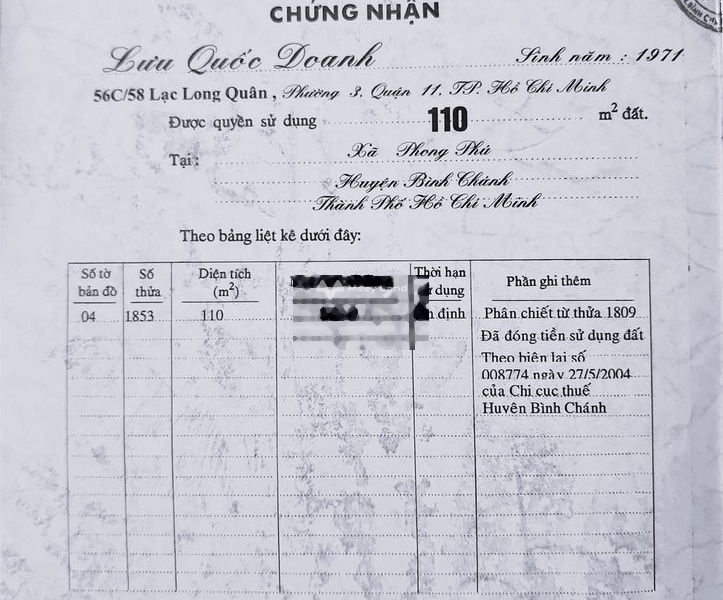 CHỨNG NHẬN
Lưu Quốc Doanh Sinh năm : 1971
56C/58 Lạc Long Quân , Phường 3, Quận 11, TP. Hồ Chí Minh
Được quyền sử dụng 110 m² đất.
Tại : Xã Phong Phú
Huyện Bình Chánh
Thành Phố Hồ Chí Minh
Theo bảng liệt kê dưới đây:
Số tờ bản đồ
Số thửa
Diện tích (m²)
Thời hạn
dụng
Phần ghi thêm
04 1853 110 định Phân chiết từ thửa 1809
Đã đóng tiền sử dụng đất
Theo biên lai số
008774 ngày 27/5/2004
của Chi cục thuế
Huyện Bình Chánh